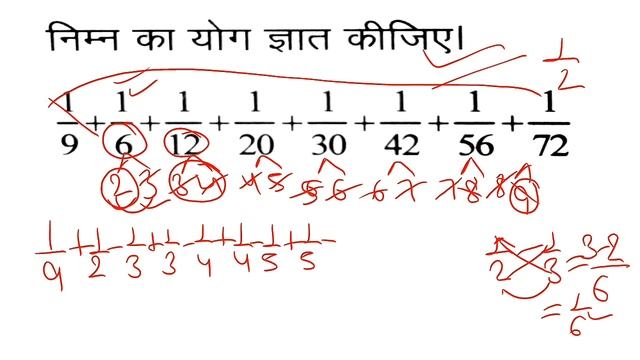 निम्न का योग ज्ञात कीजिए।
1/2
1/9 + 1/6 + 1/12 + 1/20 + 1/30 + 1/42 + 1/56 + 1/72
2 3 3 4 4 5 5 6 6 7 7 8 8 9
1/9 + 1/2 - 1/3 + 1/3 - 1/4 + 1/4 - 1/5 + 1/5 -
1/2 1/3 = 3-2/6
= 1/6